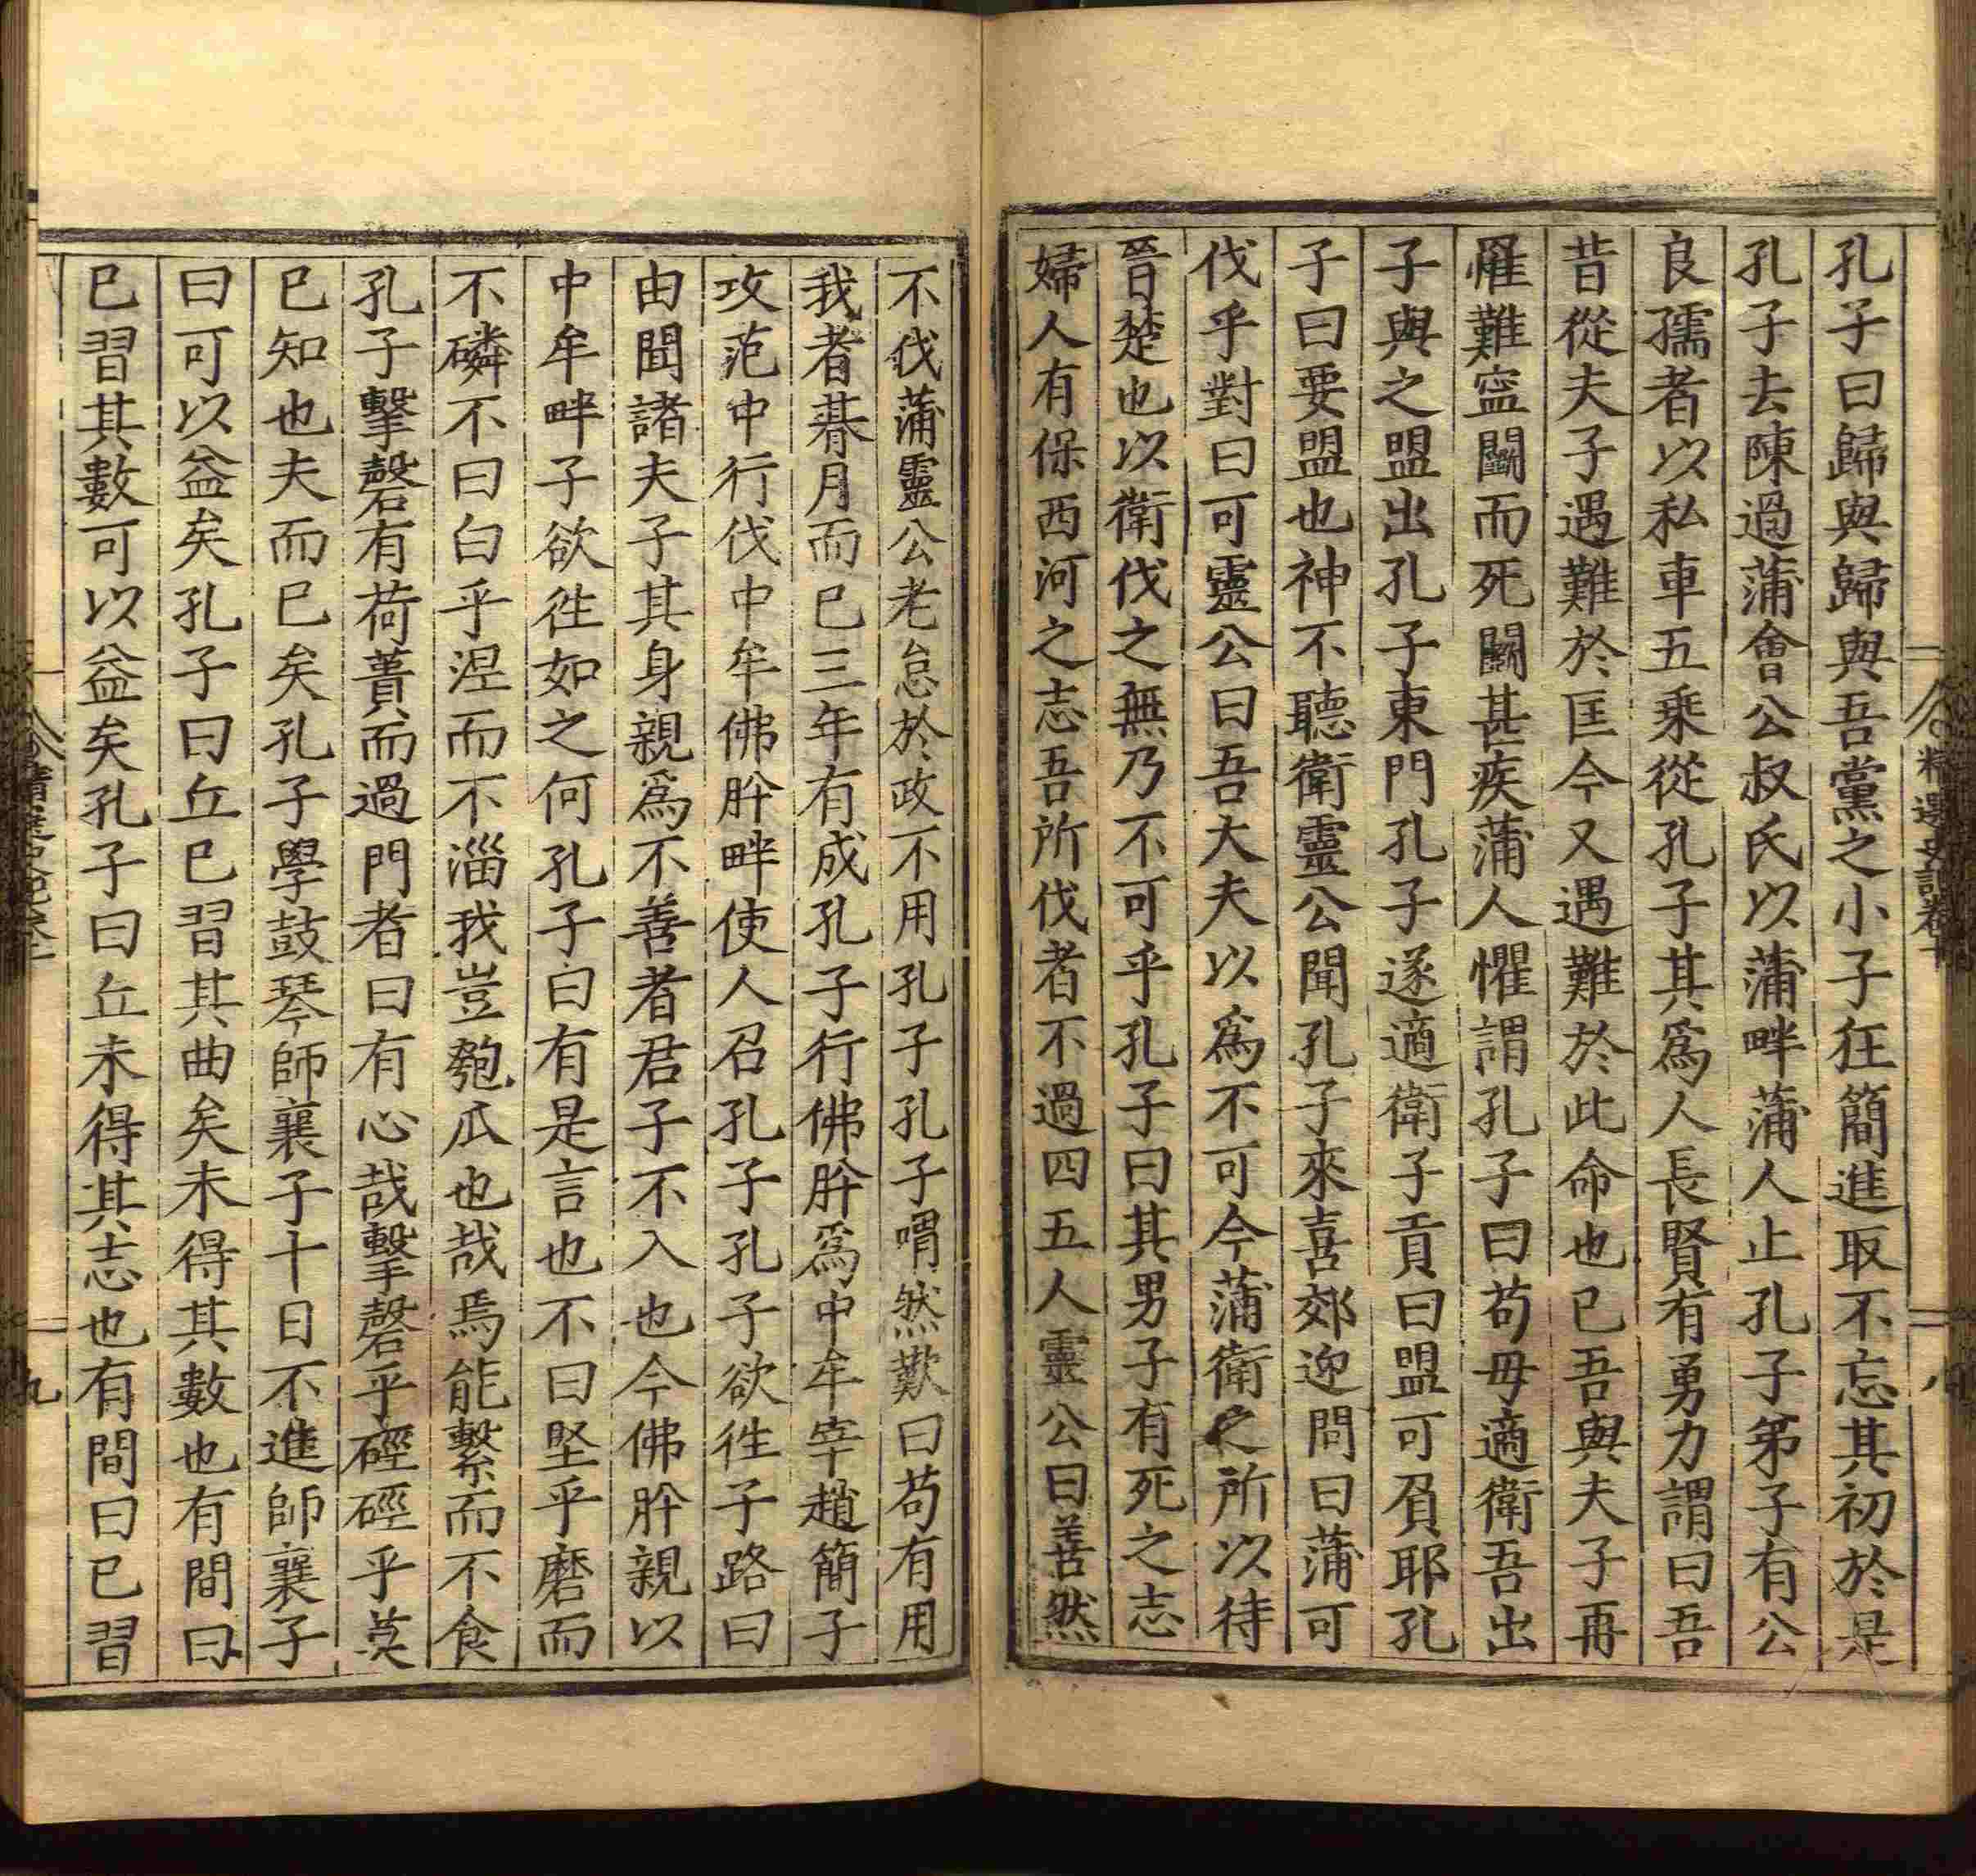 孔子曰歸與歸與吾黨之小子狂簡進取不忘其初於是
孔子去陳過蒲會公叔氏以蒲畔蒲人止孔子弟子有公
良孺者以私車五乘從孔子其爲人長賢有勇力謂曰吾
昔從夫子遇難於匡今又遇難於此命也已吾與夫子再
罹難寍鬭而死鬭甚疾蒲人懼謂孔子曰苟毋適衛吾出
子與之盟出孔子東門孔子遂適衛子貢曰盟可負耶孔
子曰要盟也神不聽衛靈公聞孔子來喜郊迎問曰蒲可
伐乎對曰可靈公曰吾大夫以爲不可今蒲衛之所以待
晉楚也以衛伐之無乃不可乎孔子曰其男子有死之志
婦人有保西河之志吾所伐者不過四五人靈公曰善然
不伐蒲靈公老怠於政不用孔子孔子喟然歎曰苟有用
我者朞月而已三年有成孔子行佛肸爲中牟宰趙簡子
攻范中行伐中牟佛肸畔使人召孔子孔子欲徃子路曰
由聞諸夫子其身親爲不善者君子不入也今佛肸親以
中牟畔子欲徃如之何孔子曰有是言也不曰堅乎磨而
不磷不曰白乎涅而不淄我豈匏瓜也哉焉能繫而不食
孔子擊磬有荷蕢而過門者曰有心哉擊磬乎硜硜乎莫
已知也夫而已矣孔子學鼓琴師襄子十日不進師襄子
曰可以益矣孔子曰丘已習其曲矣未得其數也有間曰
已習其數可以益矣孔子曰丘未得其志也有間曰已習
精選史記卷十
八
九